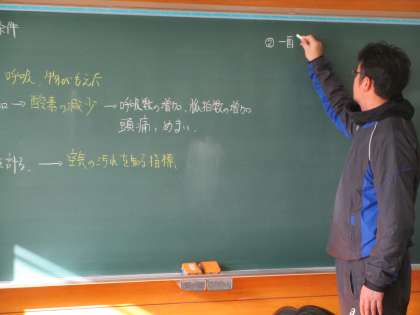 条件
② 一酉
呼吸、物がもえた
加 → 酸素の減少 → 呼吸数の増加、脈拍数の増加
頭痛、めまい、
を計る。 → 空気の汚れを知る指標。